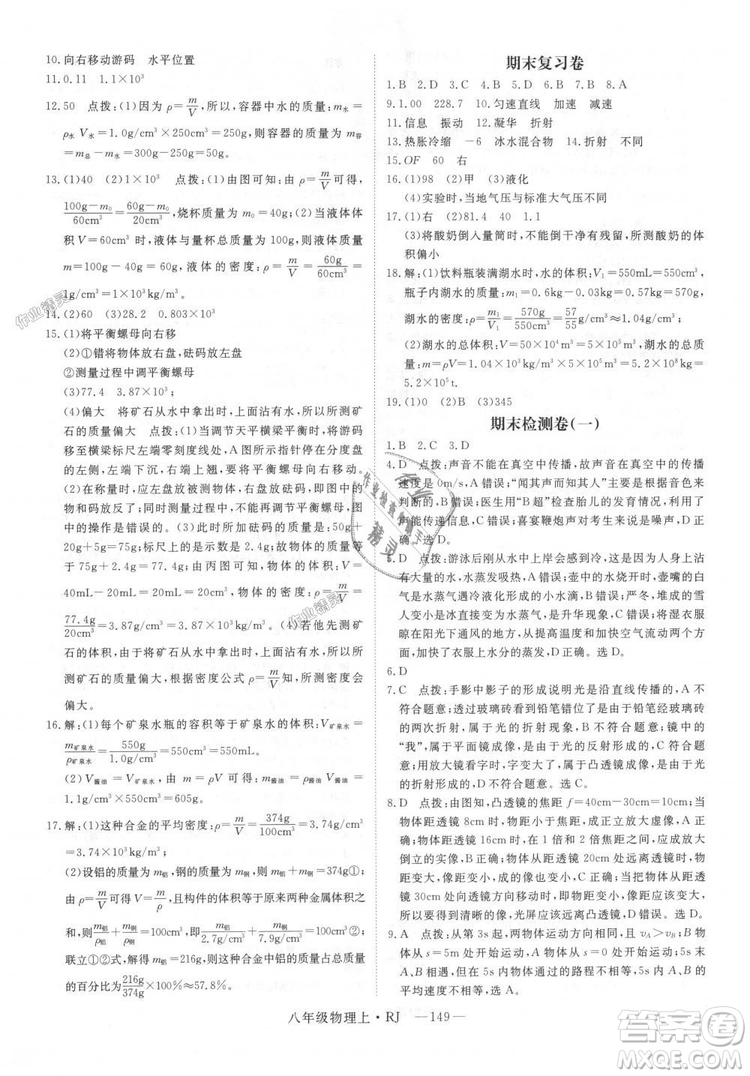 10.向右移动游码 水平位置
11.0.11 1.1×10³
12.50 点拨:(1)因为ρ=m/V,所以,容器中水的质量:m水=
ρ水V水=1.0g/cm³×250cm³=250g,所以,容器的质量为:
m容=m总-m水=300g-250g=50g。
13.(1)40 (2)1×10³ 点拨:(1)由图可知:由ρ=m/V可得,
(100g-m杯)/60cm³=(60g-m杯)/20cm³,烧杯质量为m杯=40g。(2)当液体体
积V=60cm³时,液体与量杯总质量为m总=100g,液体质量
m=m总-m杯=100g-40g=60g,液体的密度ρ=m/V=60g/60cm³
=1g/cm³=1×10³kg/m³。
14.(2)60 (3)48.2 0.803×10³
15.(1)将平衡螺母向右移
(2)①错将物体放右盘,砝码放左盘
②测量过程中调平衡螺母
(3)77.4 3.87×10³
(4)偏大 将矿石从水中拿出时,矿石会沾水,所以所测矿
石的质量偏大 点拨:(1)当调节天平横梁平衡时,将游码
移至横梁标尺左端零刻度线处,A图所示指针停在分度盘
的左侧,左端下沉,右端上翘。所以平衡螺母向上翘的右端
移动。(2)在称量时,应该是左物右码,但图B所示,左盘放
砝码,右盘放物体,所以是错误的,且测量过程中只能动砝
码和游码,不能再调节平衡螺母,图中的手仍在调节平衡
螺母,操作是错误的。(3)所加砝码的质量是:50g+
20g+5g=75g;标尺上的示数是2.4g,所以被测物体的质量
等于75g+2.4g=77.4g;由丙图可知,矿石的体积V=
40mL-20mL=20mL=20cm³;矿石的密度:ρ=m/V=
77.4g/20cm³=3.87g/cm³=3.87×10³kg/m³。(4)若他先测矿
石的体积,因将矿石从水中拿出时,矿石会沾水,会导致所
测矿石的质量偏大,根据密度公式ρ=m/V,则测得的密度会
偏大。
16.解:(1)每个矿泉水瓶的容积等于矿泉水的体积V矿泉水=
m矿泉水/ρ矿泉水=550g/1g/cm³=550cm³=550mL。
(2)V酱油=V矿泉水=550mL=550cm³,
m酱油=ρ酱油V酱油=1.1g/cm³×550cm³=605g。
17.解:(1)这种合金的平均密度:ρ=m/V=374g/100cm³=3.74g/cm³
=3.74×10³kg/m³。
(2)设铝的质量为m铝,钢的质量为m钢,则m铝+m钢=374g①;
由ρ=m/V可得,V=m/ρ,且构件的体积等于原来两种金属体积之
和,则m铝/ρ铝+m钢/ρ钢=100cm³,即m铝/2.7g/cm³+m钢/7.9g/cm³=100cm³②,
由①②解得m铝=216g,则这种合金中铝的质量占总质量
的百分比为216g/374g×100%≈57.8%。
期末复习卷
1.B 2.D 3.D 4.C 5.B 6.B 7.B 8.A
9.1.00 228.7 10.匀速直线 加速 减速
11.信息 振动 12.凝华 折射
13.热胀冷缩 -6 冰水混合物 14.折射 不同
15.OF 60 右
16.(1)98 (2)甲 (3)液化
(4)实验时,当地气压与标准大气压不同
17.(1)右 (2)81.4 40 1.1
(3)将酸奶倒入量筒时,不能倒净而有残留,所测酸奶的体
积偏小
18.解:(1)饮料瓶装满湖水时,湖水的体积:V₁=550mL=550cm³,
瓶子中湖水的质量:m₁=0.6kg-0.03kg=0.57kg=570g,
湖水的密度:ρ=m₁/V₁=570g/550cm³=57/55g/cm³≈1.04g/cm³。
(2)湖水的总体积:V=50×10⁴m²×10m=5×10⁶m³,湖水的总
质量:m=ρV=1.04×10³kg/m³×5×10⁶m³=5.2×10⁹kg=5.2
×10⁶t。
19.(1)(2)B (3)345
期末检测卷(一)
1.B 2.C 3.D
4.D 点拨:声音不能在真空中传播,故声音在真空中的传播
速度是0m/s,A错误;"闻其声而知其人"主要是根据音色来
判断的,B错误;医生用"B超"检查胎儿的发育情况,利用了
声能传递信息,C错误;喜宴鞭炮声对考生来说是噪声,D正
确。
5.D 点拨:游泳后刚从水中上岸会感到冷,这是因为人身上沾
有大量的水,水蒸发吸热,A错误;壶中的水烧开时,壶嘴的
白气是水蒸气遇冷液化形成的,B错误;严冬,堆成的雪
人变小是冰变为水蒸气,是升华现象,C错误;将湿衣服
晾在阳光下通风的地方,提高了温度,加快了空气流动,有
助于衣服上水分的蒸发,D正确。故选D。
6.D
7.C 点拨:手影中影子的形成说明光是沿直线传播的,A不
符合题意;透过玻璃砖看到铅笔错位了是由于铅笔经玻璃砖
的两次折射,属于光的折射现象,B不符合题意;镜中的
"我",属于平面镜成像,是由光的反射形成的,C符合题
意;用放大镜看数字,数字变大,属于凸透镜成像,是由于
光的折射形成的,D不符合题意。故选C。
8.D 点拨:由图知,凸透镜的焦距f=10cm,A错误;当物体
距透镜5cm时,物距小于焦距,成正立放大的虚像,B错
误;当物体距透镜16cm时,物距在1倍和2倍焦距之间,
成倒立、放大的实像,不是照相机原理,C错误;当物体从距
透镜30cm处向透镜方向移动时,即物距变小,像距会变
大,若想在光屏上得到清晰的像,光屏应远离凸透镜,D正
确。
9.A 点拨:从第3s起,两物体的运动方向相同,且vA>vB;
两物体不是从同一位置开始运动的,A物体从s=0处开始
运动,B物体从s=5m处开始运动;两物体都运动5s时,A
物体通过的路程大于B物体在5s内通过的路程;两物体不
是同时开始运动,B物体在0时刻开始运动,A物体在第3s
八年级物理上·RJ —149—
作业精灵
作业检查
精灵
答案圈
MXQE.COM